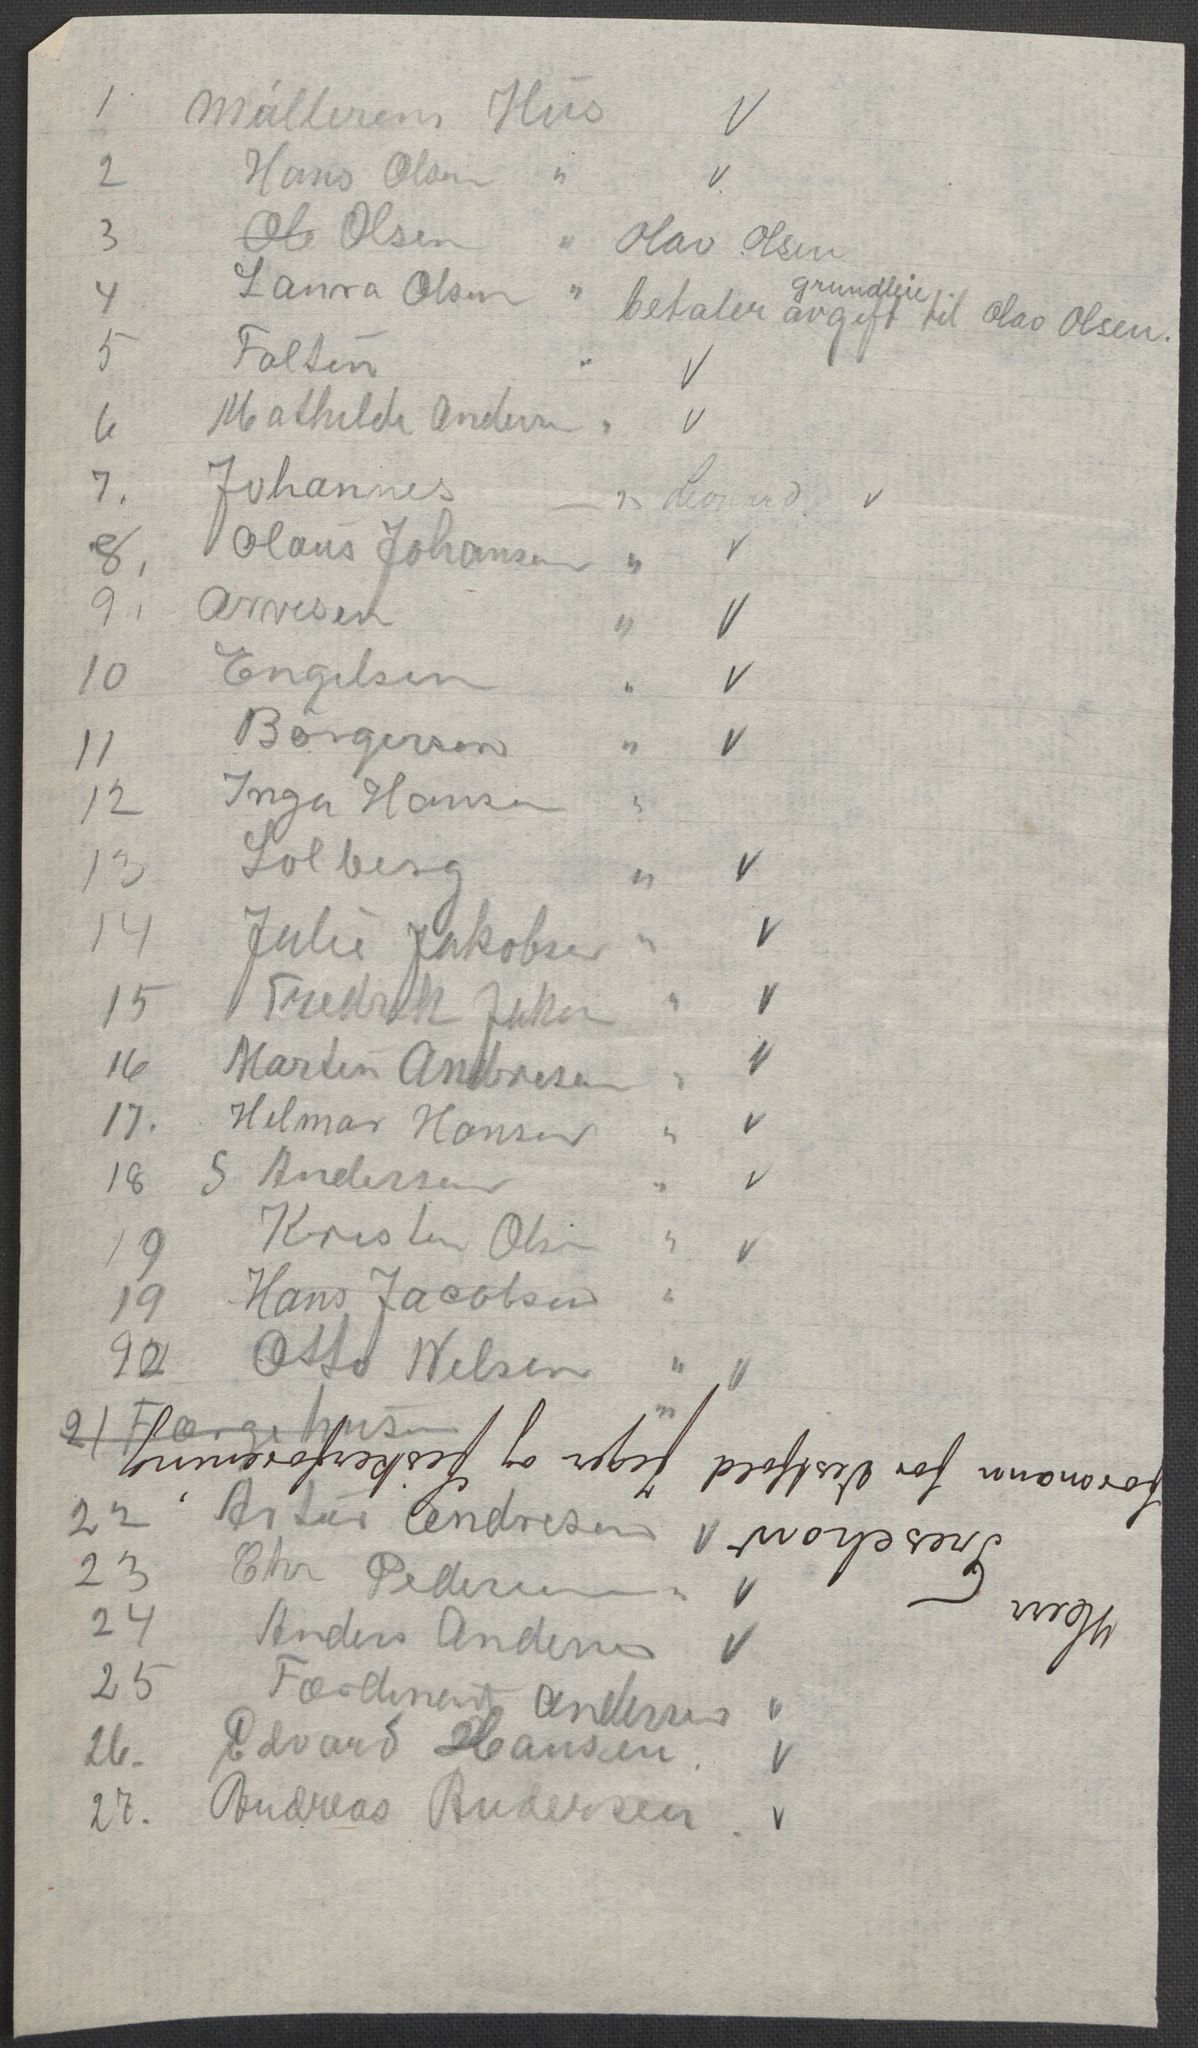 1 Müllerens Hus V
2 Hans Olsen " V
3 Ole Olsen " Olav Olsen
4 Laura Olsen " betaler avgift grundleie til Olav Olsen.
5 Foltin " V
6 Mathilde Andersen " V
7. Johannes — " Leonard. V
8. Olaus Johansen " V
9. Arnesen " V
10 Engelsen " V
11 Börgersen " V
12 Inga Hansen "
13 Solberg " V
14 Julie Jakobsen " V
15 Fredrik Jakon " V
16 Martin Andresen " V
17. Hilmar Hansen " V
18 S Andersen " V
19 Kristen Olsen " V
19 Hans Jacobsen "
20 Otto Nelsen " V
21 Færgehusen "
22 Artur Andresen V
23 Chr Pedersen " V
24 Anders Andersen V
25 Ferdinant Andersen "
26. Edvard Hansen. V
27. Andreas Andersen. V
Herr
Treschow
formann for Vestfold Jeger og Fiskerforening.